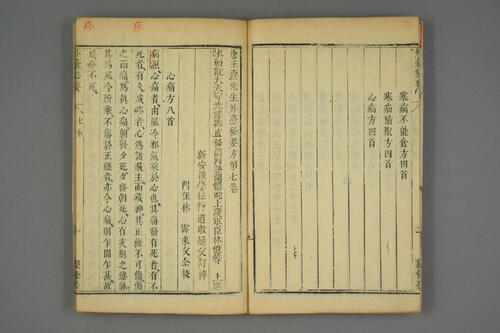 寒疝不能食方四首
寒疝積聚方四首
心疝方四首
唐王燾先生外臺秘要方第七卷
宋朝散大夫守光祿卿直秘閣判登聞檢院上護軍臣林億等 上進
新安後學程衍道敬通父訂梓
心痛方八首
病源心痛者由風冷邪氣乘於心也其痛發有死者有不
死者有久成疹者心為諸藏主而藏神其正經不可傷傷
之而痛為真心痛朝發夕死夕發朝死心有支別之絡脈
其為風冷所乘不傷於正經者亦令心痛則乍間乍甚故
成疹不死